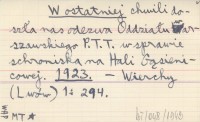 W ostatniej chwili do-
szła nas odezwa Oddziału War-
szawskiego P.T.T. w sprawie
schroniska na Hali Gąsieni-
cowej. 1923. – Wierchy
(Lwów) 1: 294.
MT